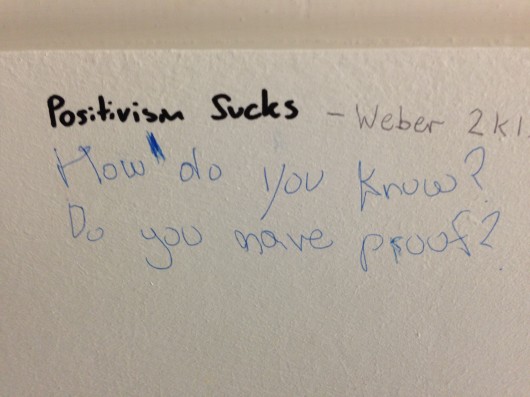 Positivism Sucks - Weber 2k1
How do you know?
Do you have proof?